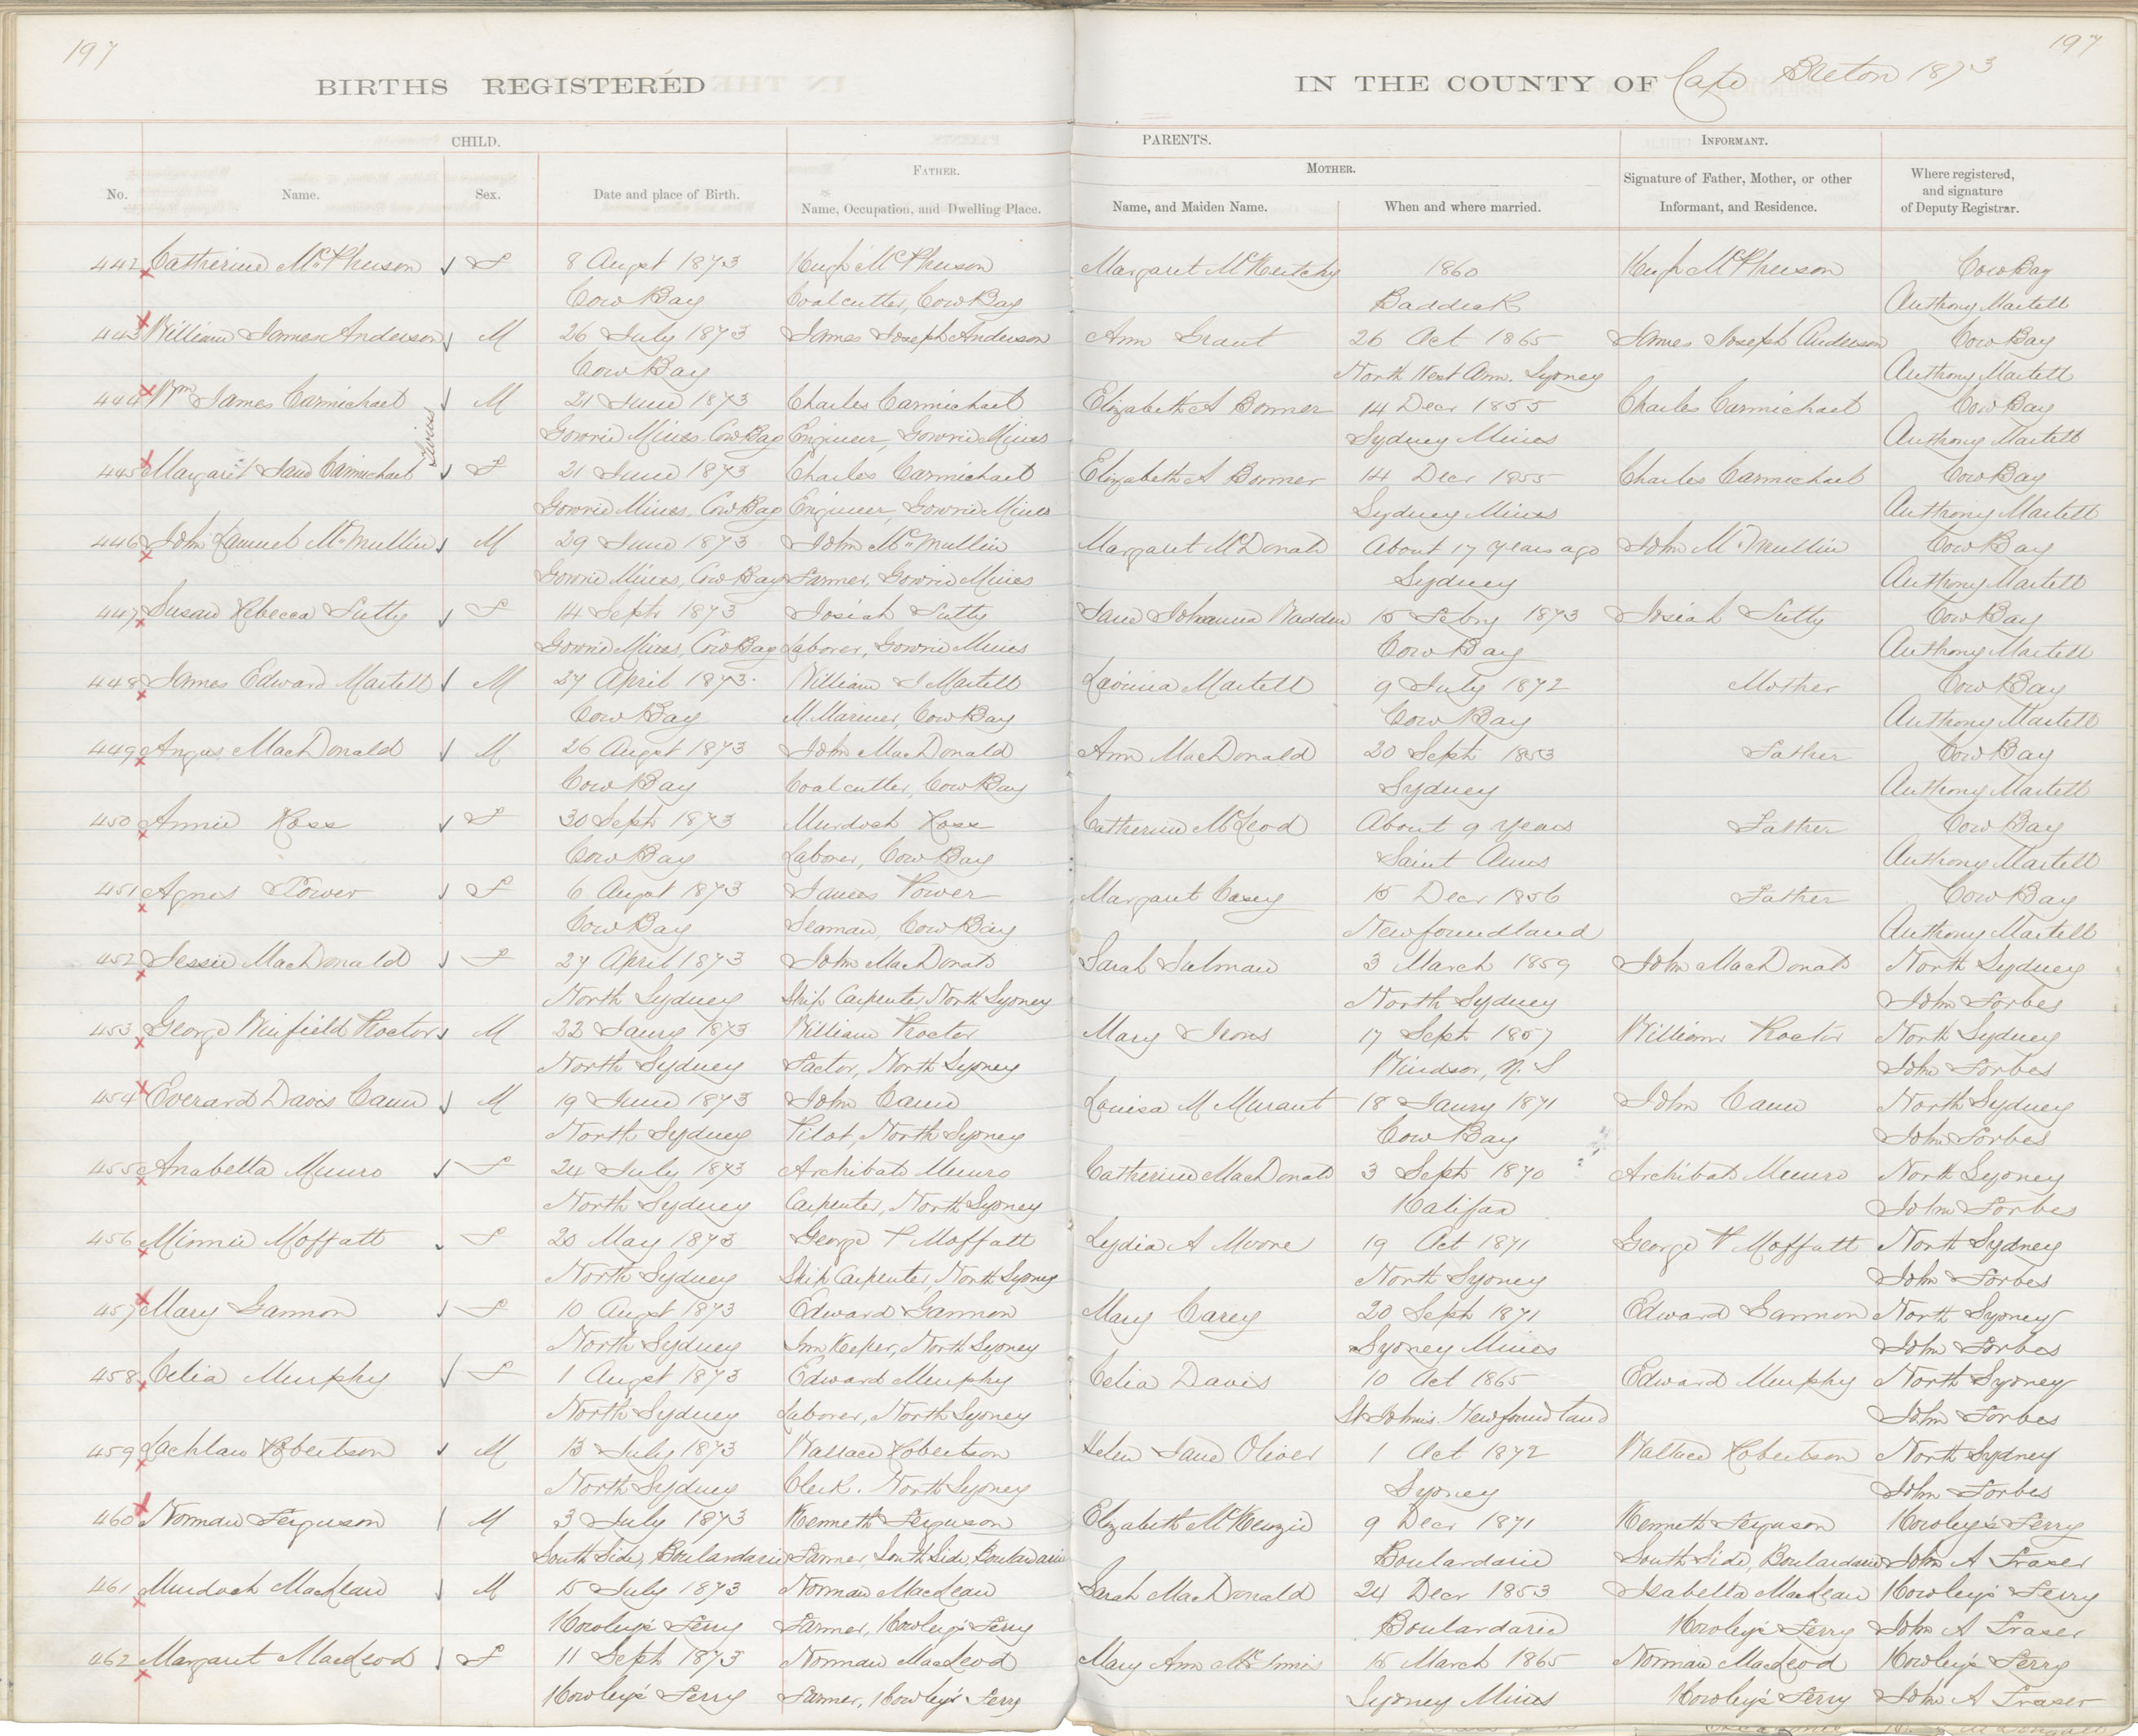 197
197
BIRTHS REGISTERED
IN THE COUNTY OF Cape Breton 1873
CHILD.
PARENTS.
INFORMANT.
FATHER.
MOTHER.
No.
Name.
Sex.
Date and place of Birth.
Name, Occupation, and Dwelling Place.
Name, and Maiden Name.
When and where married.
Signature of Father, Mother, or other
Informant, and Residence.
Where registered,
and signature
of Deputy Registrar.
442 Catherine McPherson F 8 Augst 1873 Hugh McPherson Margaret McKeutchy 1860 Hugh McPherson Cow Bay
Cow Bay Coal cutter, Cow Bay Baddeck Anthony Martell
443 William James Anderson M 26 July 1873 James Joseph Anderson Ann Grant 26 Oct 1865 James Joseph Anderson Cow Bay
Cow Bay North West Arm. Sydney Anthony Martell
444 Wm James Carmichael M 21 June 1873 Charles Carmichael Elizabeth A Bonner 14 Decr 1855 Charles Carmichael Cow Bay
Gowrie Mines, Cow Bay Engineer, Gowrie Mines Sydney Mines Anthony Martell
Twins
445 Margaret Jane Carmichael F 21 June 1873 Charles Carmichael Elizabeth A Bonner 14 Decr 1855 Charles Carmichael Cow Bay
Gowrie Mines, Cow Bay Engineer, Gowrie Mines Sydney Mines Anthony Martell
446 John Lamuel McMullin M 29 June 1873 John McMullin Margaret McDonald About 17 years ago John McMullin Cow Bay
Gowrie Mines, Cow Bay Farmer, Gowrie Mines Sydney Anthony Martell
447 Susan Rebecca Tutty F 14 Septr 1873 Josiah Tutty Jane Johanna Wadden 15 Febry 1873 Josiah Tutty Cow Bay
Gowrie Mines, Cow Bay Laborer, Gowrie Mines Cow Bay Anthony Martell
448 James Edward Martell M 27 April 1873. William J Martell Lavinia Martell 9 July 1872 Mother Cow Bay
Cow Bay M. Mariner, Cow Bay Cow Bay Anthony Martell
449 Angus MacDonald M 26 Augst 1873 John MacDonald Ann MacDonald 20 Sept 1853 Father Cow Bay
Cow Bay Coal cutter, Cow Bay Sydney Anthony Martell
450 Annie Ross F 30 Septr 1873 Murdoch Ross Catherine McLeod About 9 years Father Cow Bay
Cow Bay Laborer, Cow Bay Saint Anns Anthony Martell
451 Agnes Power F 6 Augst 1873 James Power Margaret Casey 15 Decr 1856 Father Cow Bay
Cow Bay Seaman, Cow Bay Newfoundland Anthony Martell
452 Jessie MacDonald F 27 April 1873 John MacDonald Sarah Salman 3 March 1859 John MacDonald North Sydney
North Sydney Ship Carpenter North Sydney North Sydney John Forbes
453 George Winfield Proctor M 22 Jany 1873 William Proctor Mary Irons 17 Sept 1857 William Proctor North Sydney
North Sydney Factor, North Sydney Windsor, N. S John Forbes
454 Everard Davis Cann M 19 June 1873 John Cann Louisa M Murant 18 Jany 1871 John Cann North Sydney
North Sydney Pilot, North Sydney Cow Bay John Forbes
455 Anabella Munro F 24 July 1873 Archibald Munro Catherine MacDonald 3 Septr 1870 Archibald Munro North Sydney
North Sydney Carpenter, North Sydney Halifax John Forbes
456 Minnie Moffatt F 20 May 1873 George P Moffatt Lydia A Moore 19 Oct 1871 George P Moffatt North Sydney
North Sydney Ship Carpenter, North Sydney North Sydney John Forbes
457 Mary Gannon F 10 Augst 1873 Edward Gannon Mary Carey 20 Septr 1871 Edward Gannon North Sydney
North Sydney Inn Keeper, North Sydney Sydney Mines John Forbes
458 Celia Murphy F 1 Augst 1873 Edward Murphy Celia Davis 10 Oct 1865 Edward Murphy North Sydney
North Sydney Laborer, North Sydney St Johns. Newfoundland John Forbes
459 Lachlan Robertson M 13 July 1873 Wallace Robertson Helen Jane Oliver 1 Oct 1872 Wallace Robertson North Sydney
North Sydney Clerk. North Sydney Sydney John Forbes
460 Norman Ferguson M 3 July 1873 Kenneth Ferguson Elizabeth McKenzie 9 Decr 1871 Kenneth Ferguson Howley's Ferry
South Side, Boulardarie Farmer South Side, Boulardarie Boulardarie South Side, Boulardarie John A Fraser
461 Murdoch MacLean M 15 July 1873 Norman MacLean Sarah MacDonald 24 Decr 1853 Isabella MacLean Howley's Ferry
Howley's Ferry Farmer, Howley's Ferry Boulardarie Howley's Ferry John A Fraser
462 Margaret MacLeod F 11 Septr 1873 Norman MacLeod Mary Ann McInnis 15 March 1865 Norman MacLeod Howley's Ferry
Howley's Ferry Farmer, Howley's Ferry Sydney Mines Howley's Ferry John A Fraser